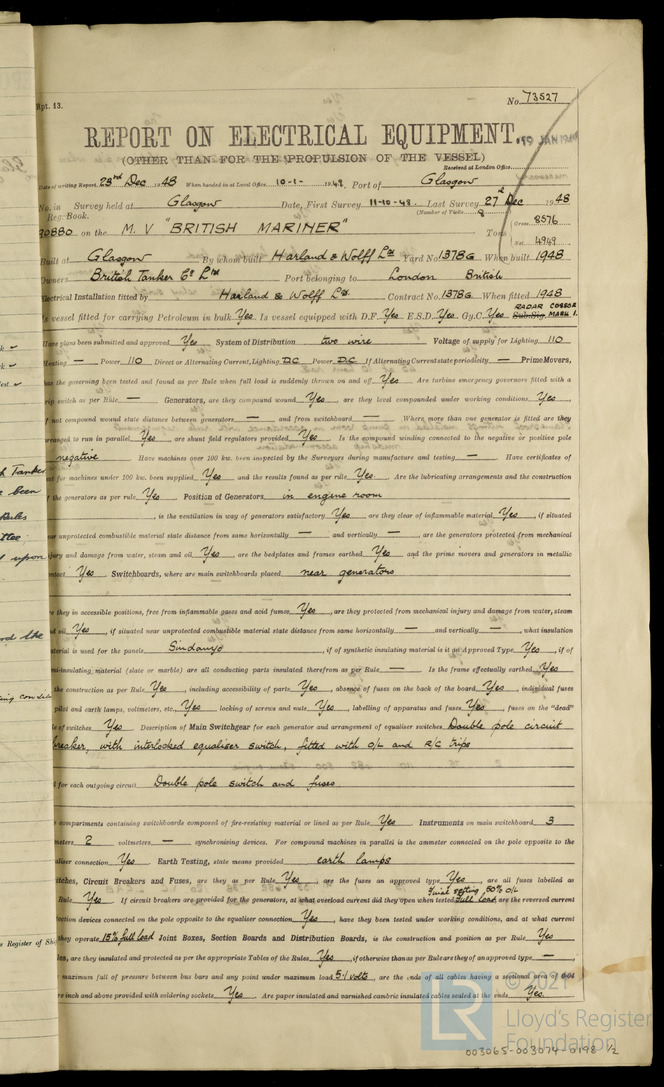 Rpt. 13.
No. 73527
REPORT ON ELECTRICAL EQUIPMENT.
(OTHER THAN FOR THE PROPULSION OF THE VESSEL)
Received at London Office
Date of writing Report 23rd Dec 1948 When handed in at Local Office 10-1- 1949 Port of Glasgow
No. in Survey held at Glasgow Date, First Survey 11-10-48. Last Survey 27th Dec 1948
Reg. Book. (Number of Visits 8
30880 on the M.V "BRITISH MARINER" Tons Gross 8576
Net 4949
Built at Glasgow By whom built Harland & Wolff Ltd Yard No. 1378G When built 1948
Owners British Tanker Co Ltd Port belonging to London British
Electrical Installation fitted by Harland & Wolff Ltd. Contract No. 1378G When fitted 1948
Is vessel fitted for carrying Petroleum in bulk Yes Is vessel equipped with D.F. Yes E.S.D. Yes Gy.C. Yes Sub.Sig. RADAR COSSOR MARK 1.
Have plans been submitted and approved Yes System of Distribution two wire Voltage of supply for Lighting 110
Heating — Power 110 Direct or Alternating Current, Lighting D.C Power D.C If Alternating Current state periodicity — Prime Movers,
has the governing been tested and found as per Rule when full load is suddenly thrown on and off Yes Are turbine emergency governors fitted with a
trip switch as per Rule — Generators, are they compound wound Yes, are they level compounded under working conditions Yes,
if not compound wound state distance between generators — and from switchboard — Where more than one generator is fitted are they
arranged to run in parallel Yes, are shunt field regulators provided Yes Is the compound winding connected to the negative or positive pole
negative Have machines over 100 kw. been inspected by the Surveyors during manufacture and testing — Have certificates of
test for machines under 100 kw. been supplied Yes and the results found as per rule Yes. Are the lubricating arrangements and the construction
of the generators as per rule Yes Position of Generators in engine room
, is the ventilation in way of generators satisfactory Yes are they clear of inflammable material Yes, if situated
near unprotected combustible material state distance from same horizontally — and vertically —, are the generators protected from mechanical
injury and damage from water, steam and oil Yes, are the bedplates and frames earthed Yes and the prime movers and generators in metallic
contact Yes Switchboards, where are main switchboards placed near generators
are they in accessible positions, free from inflammable gases and acid fumes Yes, are they protected from mechanical injury and damage from water, steam
and oil Yes, if situated near unprotected combustible material state distance from same horizontally — and vertically —, what insulation
material is used for the panels Sindanyo, if of synthetic insulating material is it an Approved Type Yes, if of
semi-insulating material (slate or marble) are all conducting parts insulated therefrom as per Rule — Is the frame effectually earthed Yes
Is the construction as per Rule Yes, including accessibility of parts Yes, absence of fuses on the back of the board Yes, individual fuses
to pilot and earth lamps, voltmeters, etc. Yes locking of screws and nuts Yes, labelling of apparatus and fuses Yes, fuses on the "dead"
side of switches Yes Description of Main Switchgear for each generator and arrangement of equaliser switches Double pole circuit
breaker, with interlocked equaliser switch, fitted with O/L and R/C trips
and for each outgoing circuit Double pole switch and fuses
Are compartments containing switchboards composed of fire-resisting material or lined as per Rule Yes Instruments on main switchboard 3
ammeters 2 voltmeters — synchronising devices. For compound machines in parallel is the ammeter connected on the pole opposite to the
equaliser connection Yes. Earth Testing, state means provided earth lamps
Switches, Circuit Breakers and Fuses, are they as per Rule Yes, are the fuses an approved type Yes, are all fuses labelled as
per Rule Yes If circuit breakers are provided for the generators, at what overload current did they open when tested Final setting 50% O/L full load are the reversed current
protection devices connected on the pole opposite to the equaliser connection Yes, have they been tested under working conditions, and at what current
did they operate 15% full load Joint Boxes, Section Boards and Distribution Boards, is the construction and position as per Rule Yes
Cables, are they insulated and protected as per the appropriate Tables of the Rules Yes, if otherwise than as per Rule are they of an approved type —
state maximum fall of pressure between bus bars and any point under maximum load 5.1 volts, are the ends of all cables having a sectional area of 0.04
square inch and above provided with soldering sockets Yes. Are paper insulated and varnished cambric insulated cables sealed at the ends Yes.
© 2021
LR
Lloyd's Register
Foundation
003065-003074-0198 1/2